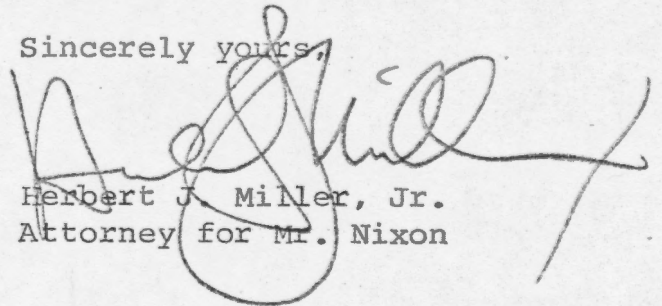 Sincerely yours,
Herbert J. Miller, Jr.
Attorney for Mr. Nixon